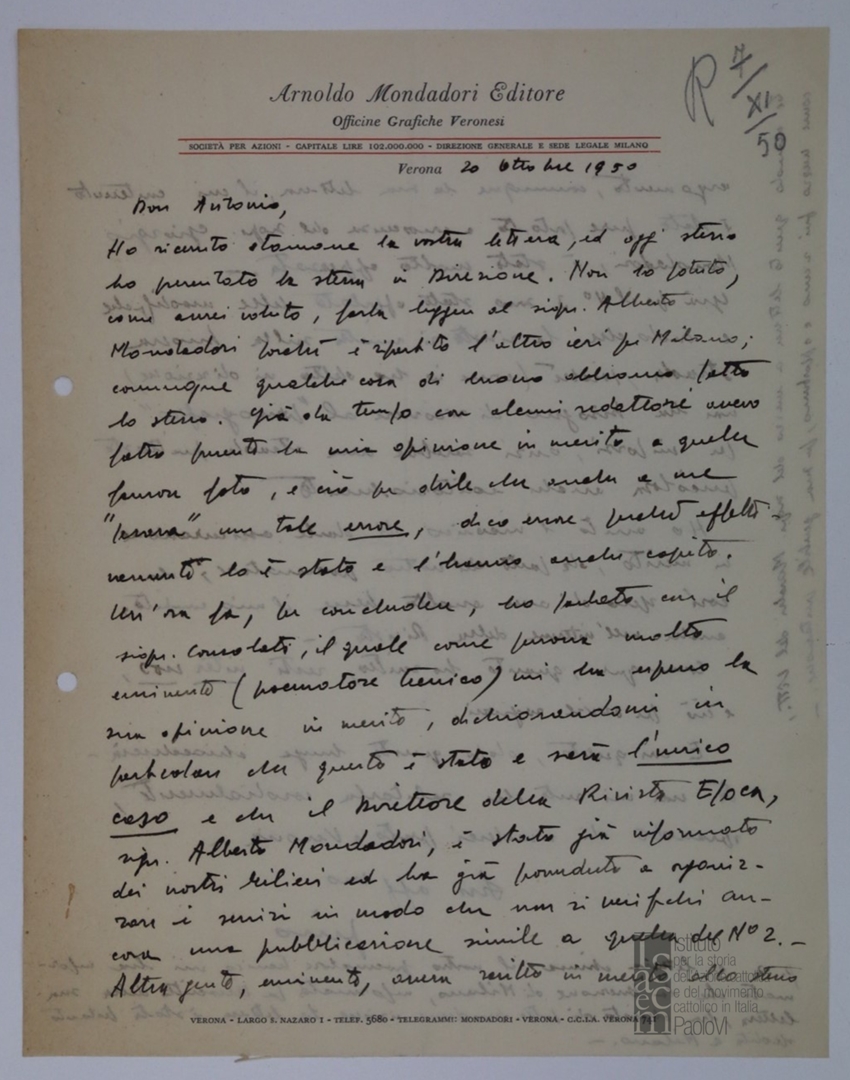 Arnoldo Mondadori Editore
Officine Grafiche Veronesi
SOCIETÀ PER AZIONI - CAPITALE LIRE 102.000.000 - DIREZIONE GENERALE E SEDE LEGALE MILANO
R 7/XI/50
Verona 20 Ottobre 1950
Don Antonio,
Ho ricevuto stamane la vostra lettera, ed oggi stesso
ho presentato la stessa in Direzione. Non ho potuto,
come avrei voluto, farla leggere al sigr. Alberto
Mondadori poiché è ripartito l'altro ieri per Milano;
comunque qualche cosa di buono abbiamo fatto
lo stesso. Già da tempo con alcuni redattori avevo
fatto presente la mia opinione in merito a quella
famosa foto, e ciò per dirle che anche a me
"pesava" un tale errore, dico errore perché effetti-
vamente lo è stato e l'hanno anche capito.
Un'ora fa, per concludere, ho parlato con il
sigr. Consolati, il quale come persona molto
eminente ( tecnico) mi ha espresso la
sua opinione in merito, dichiarandomi in
particolare che questo è stato e sarà l'unico
caso e che il Direttore della Rivista Epoca,
sigr. Alberto Mondadori, è stato già informato
dei nostri rilievi ed ha già provveduto a organiz-
zare i servizi in modo che non si verifichi an-
cora una pubblicazione simile a quella del N° 2. -
Altra gente, eminente, aveva scritto in merito allo stesso
VERONA - LARGO S. NAZARO 1 - TELEF. 5680 - TELEGRAMMI: MONDADORI - VERONA - C.C.I.A. VERONA 741
Istituto
per la storia
dell'Azione cattolica
e del movimento
cattolico in Italia
Paolo VI